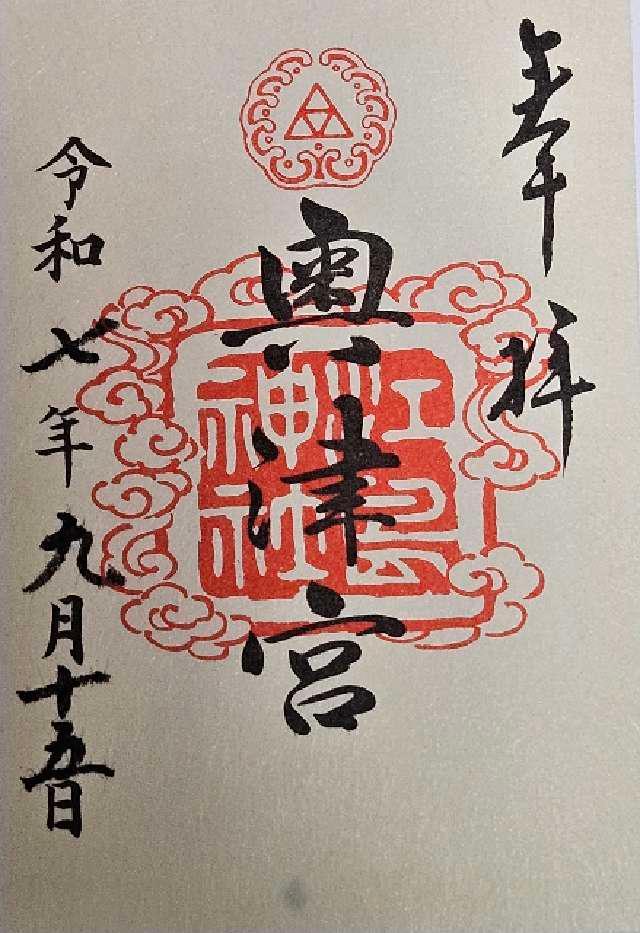 奉拝
奥津宮
江島神社
令和七年九月十五日